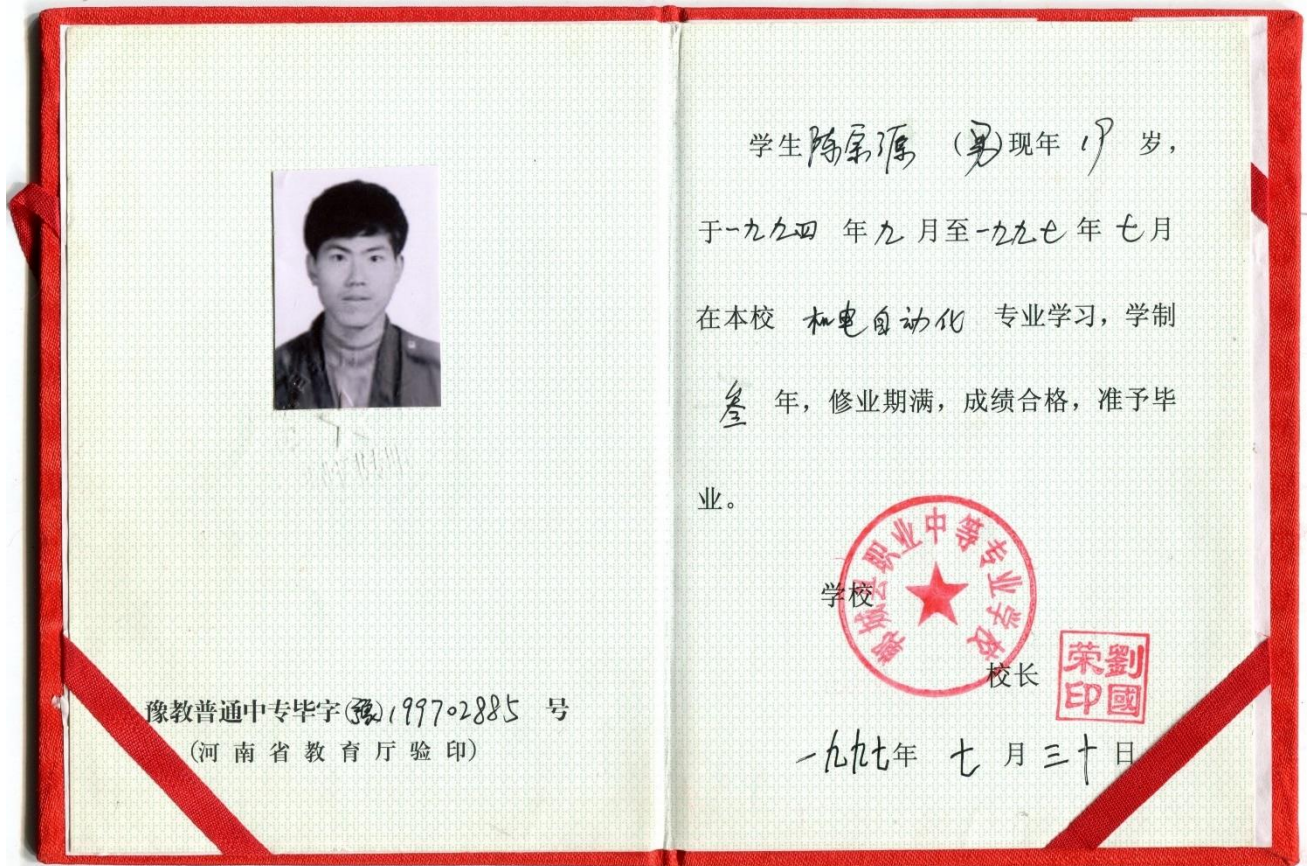 豫教普通中专毕字(豫)199702885 号
(河南省教育厅验印)
学生陈宗源 (男)现年 19 岁,
于一九九四 年九 月至一九九七 年 七月
在本校 机电自动化 专业学习,学制
叁 年,修业期满,成绩合格,准予毕
业。
郸城县职业中等专业学校
学校
校长
劉國
荣印
一九九七年 七 月三十日